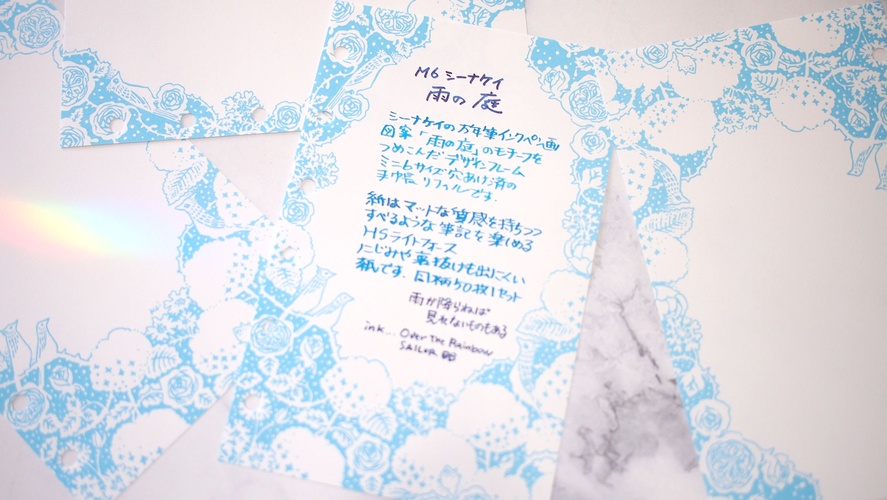 M6 シーナケイ
雨の庭
シーナケイの万年筆インクペン画
図案「雨の庭」のモチーフを
つめこんだデザインフレーム
ミニ6サイズ穴あけ済の
手中長リフィルです.
紙はマットな質感を持ちつつ
すべるような筆記を楽しめる
HSライトフォース
にじみや裏抜けも出にくい
紙です. 同柄50枚1セット
雨が降らねば
見えないものもある
ink... Over The Rainbow
SAILOR